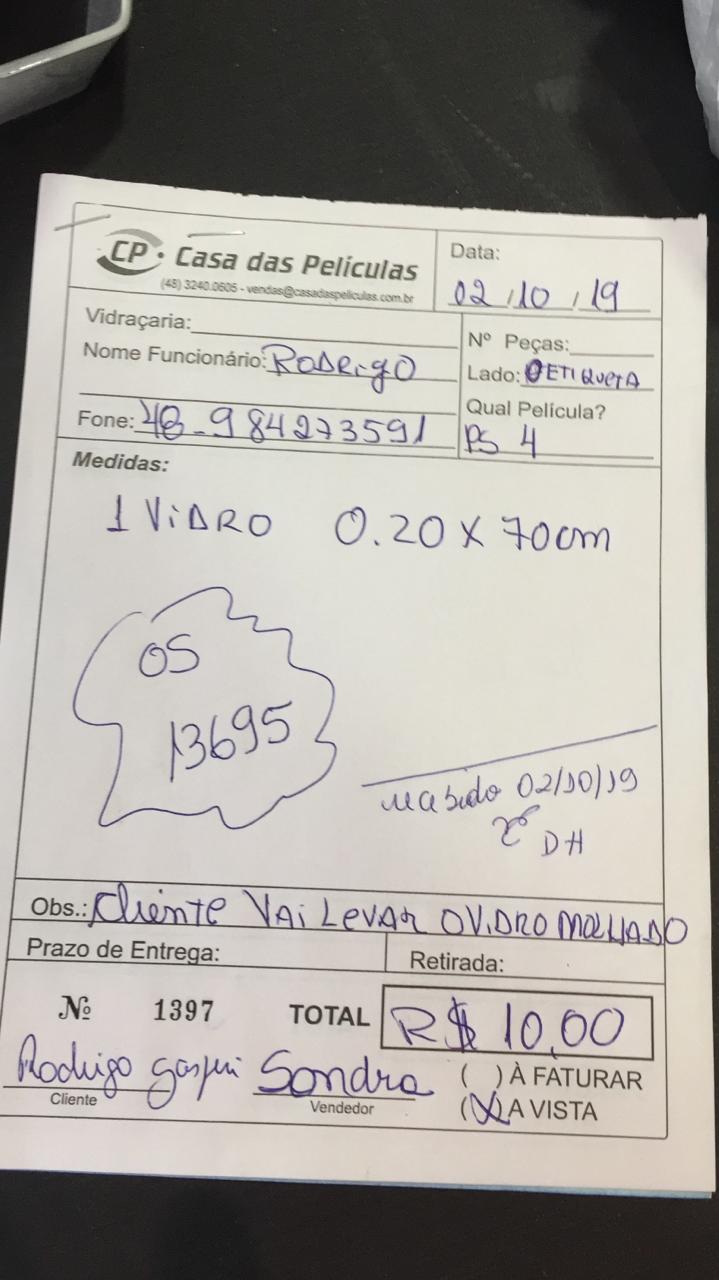 CP · Casa das Películas
(48) 3240.0605 - vendas@casadaspeliculas.com.br
Data:
02/10/19
Vidraçaria:
Nome Funcionário: RODRIGO
Fone: 48-984273591
Nº Peças:
Lado: ETIQUETA
Qual Película?
PS 4
Medidas:
1 VIDRO 0.20 X 70cm
OS
13695
02/10/19
DH
Obs.: Cliente VAI LEVAR O VIDRO MOLHADO
Prazo de Entrega:
Retirada:
Nº 1397 TOTAL R$ 10,00
Rodrigo Sondra
Cliente Vendedor
( ) À FATURAR
(X) A VISTA